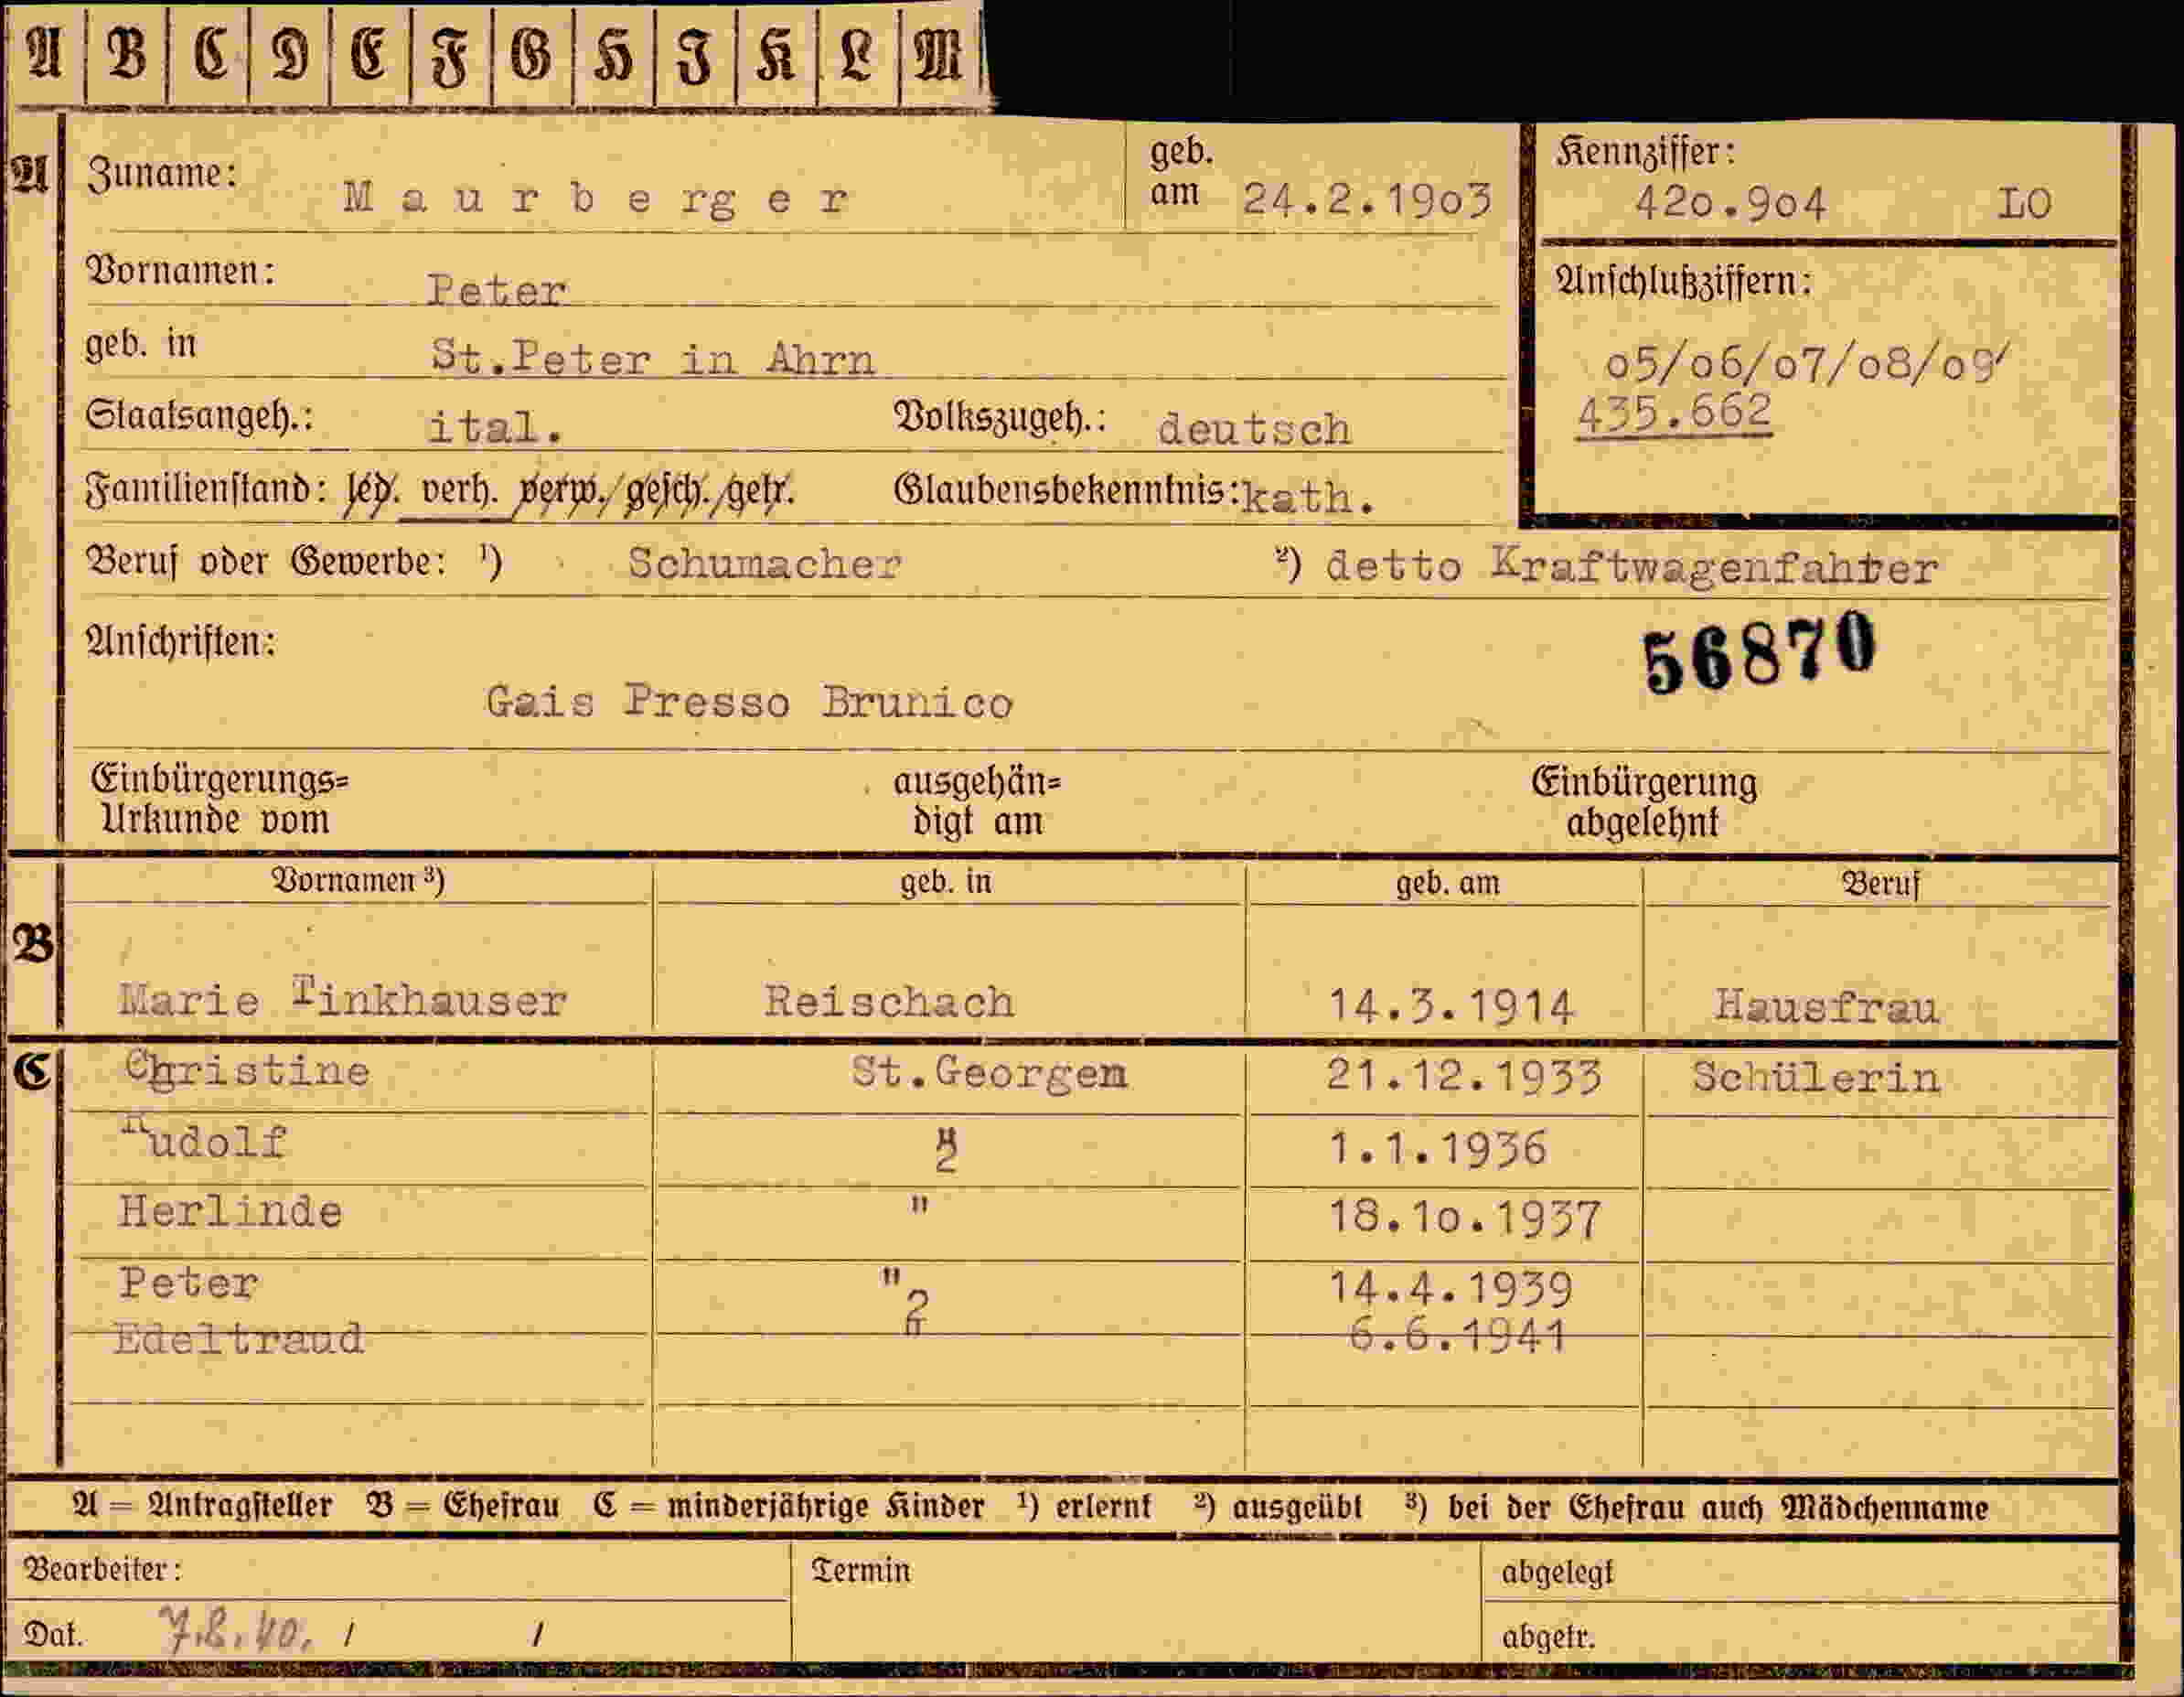 A B C D E F G H I K L M
A Zuname: Maurberger geb. am 24.2.1903
Kennziffer: 420.904 LO
Vornamen: Peter
Anschlußziffern:
geb. in St.Peter in Ahrn
05/06/07/08/09/
Staatsangeh.: ital. Volkszugeh.: deutsch
435.662
Familienstand: led. verh. verw./gesch./getr. Glaubensbekenntnis: kath.
Beruf oder Gewerbe: ¹) Schumacher ²) detto Kraftwagenfahrer
Anschriften:
56870
Gais Presso Brunico
Einbürgerungs= ausgehän= Einbürgerung
Urkunde vom digt am abgelehnt
Vornamen ³) geb. in geb. am Beruf
B
Marie Tinkhauser Reischach 14.3.1914 Hausfrau
C Christine St.Georgen 21.12.1933 Schülerin
Rudolf " 1.1.1936
Herlinde " 18.10.1937
Peter " 14.4.1939
Edeltraud " 6.6.1941
A = Antragsteller B = Ehefrau C = minderjährige Kinder ¹) erlernt ²) ausgeübt ³) bei der Ehefrau auch Mädchenname
Bearbeiter: Termin abgelegt
Dat. 7.8.40. / / abgetr.